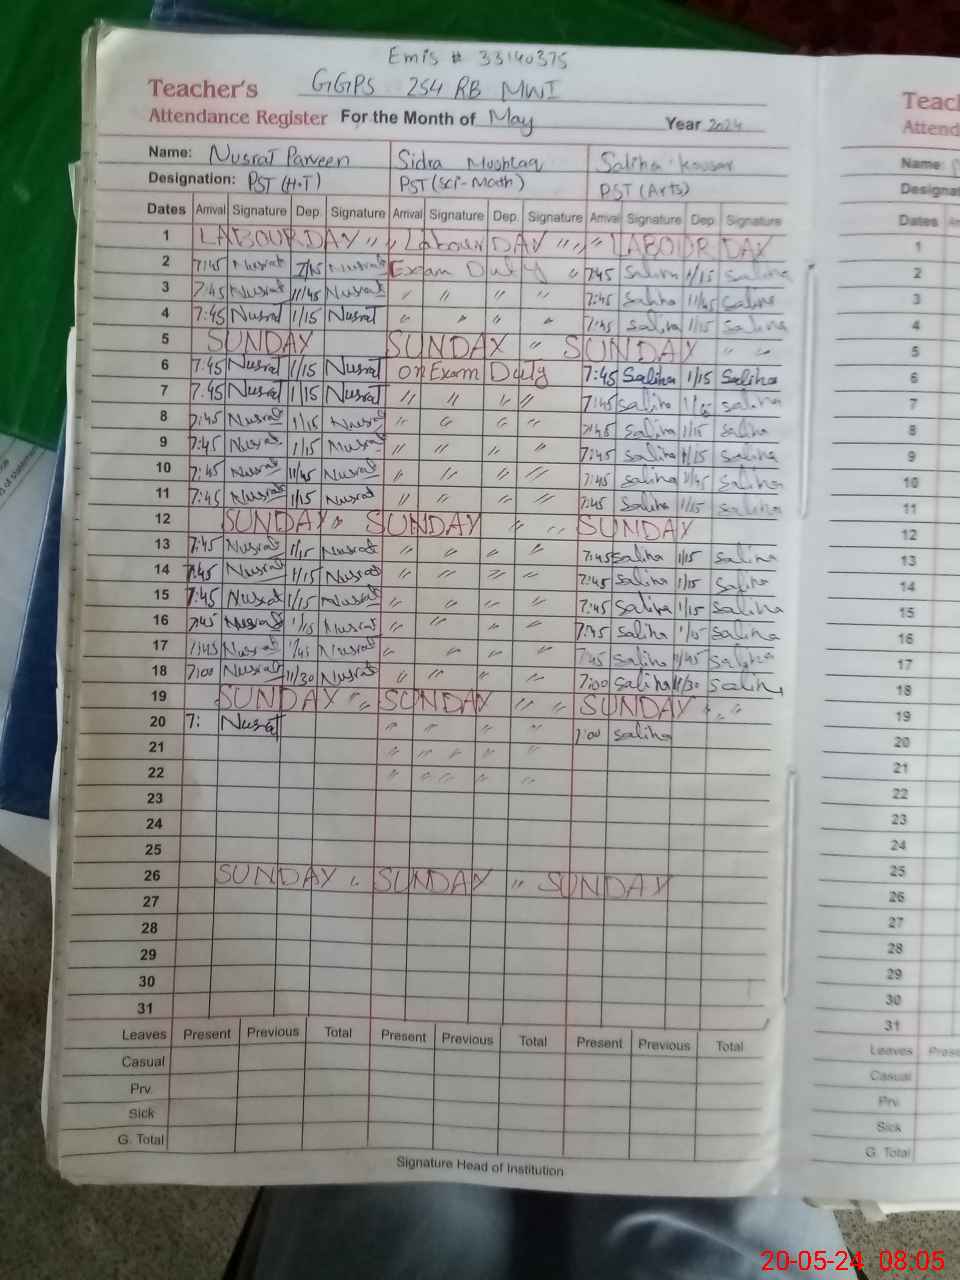 Emis # 33140375
Teacher's GGPS 254 RB MWI
Attendance Register For the Month of May Year 2024
Name: Nusrat Parveen Sidra Mushtaq Saliha Kousar
Designation: PST (H.T) PST (Sci-Math) PST (Arts)
Dates Arrival Signature Dep. Signature Arrival Signature Dep. Signature Arrival Signature Dep. Signature
1 LABOUR DAY " " Labour DAY " " " LABOUR DAY
2 7:45 Nusrat Nusrat Exam Duty " 7:45 Saliha 1/15 Saliha
3 7:45 Nusrat 11/45 Nusrat " " " " 7:45 Saliha 11/45 Saliha
4 7:45 Nusrat 1/15 Nusrat " " " " 7:45 Saliha 1/15 Saliha
5 SUNDAY SUNDAY " SUNDAY " "
6 7:45 Nusrat 1/15 Nusrat on Exam Duty 7:45 Saliha 1/15 Saliha
7 7:45 Nusrat 1/15 Nusrat " " " " 7:45 Saliha 1/15 Saliha
8 7:45 Nusrat 1/15 Nusrat " " " " 7:45 Saliha 1/15 Saliha
9 7:45 Nusrat 1/15 Nusrat " " " " 7:45 Saliha 1/15 Saliha
10 7:45 Nusrat 11/45 Nusrat " " " " 7:45 Saliha 11/45 Saliha
11 7:45 Nusrat 1/15 Nusrat " " " " 7:45 Saliha 1/15 Saliha
12 SUNDAY " SUNDAY " " SUNDAY
13 7:45 Nusrat 1/15 Nusrat " " " " 7:45 Saliha 1/15 Saliha
14 7:45 Nusrat 1/15 Nusrat " " " " 7:45 Saliha 1/15 Saliha
15 7:45 Nusrat 1/15 Nusrat " " " " 7:45 Saliha 1/15 Saliha
16 7:45 Nusrat 1/15 Nusrat " " " " 7:45 Saliha 1/15 Saliha
17 7:45 Nusrat 11/45 Nusrat " " " " 7:45 Saliha 11/45 Saliha
18 7:00 Nusrat 11/30 Nusrat " " " " 7:00 Saliha 11/30 Saliha
19 SUNDAY " SUNDAY " " SUNDAY " "
20 7: Nusrat " " " " 7:00 Saliha
21 " " " "
22 " " " "
23
24
25
26 SUNDAY " SUNDAY " SUNDAY
27
28
29
30
31
Leaves Present Previous Total Present Previous Total Present Previous Total
Casual
Prv.
Sick
G. Total
Signature Head of Institution
Teac
Attend
Name:
Designat
Dates
1
2
3
4
5
6
7
8
9
10
11
12
13
14
15
16
17
18
19
20
21
22
23
24
25
26
27
28
29
30
31
Leaves Prese
Casual
Prv.
Sick
G. Total
20-05-24 08:05